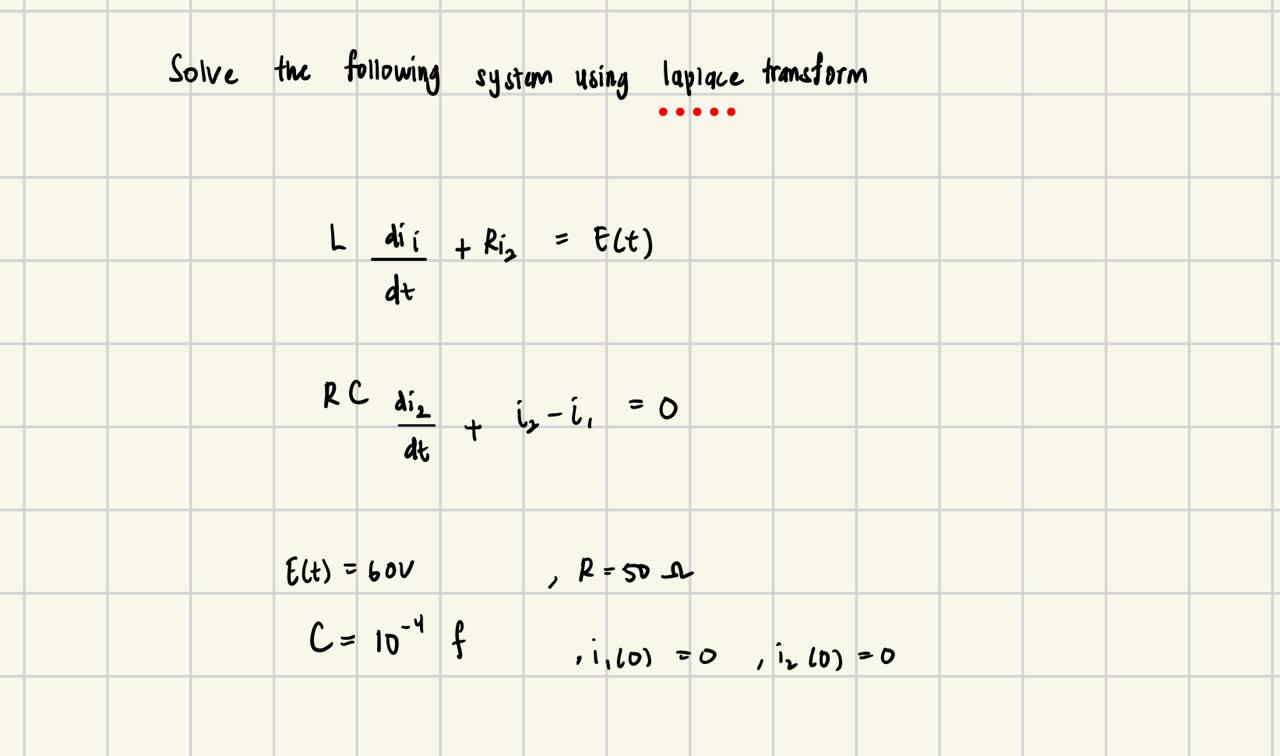 Solve the following system using laplace transform
L di₁/dt + Ri₂ = E(t)
RC di₂/dt + i₂ - i₁ = 0
E(t) = 60V , R = 50 Ω
C = 10⁻⁴ f , i₁(0) = 0 , i₂(0) = 0